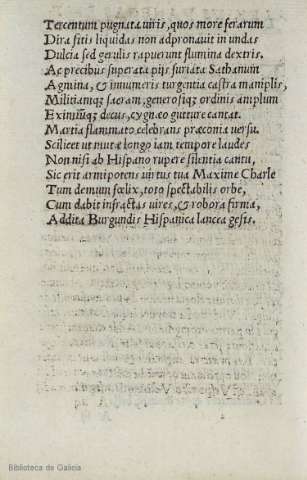 Tercentum pugnata uiris, quos more ferarum
Dira sitis liquidas non adpronauit in undas
Dulcia sed gerulis rapuerunt flumina dextris.
Ac precibus superata pijs furiata Sathanum
Agmina, & innumeris turgentia castra maniplis,
Militiamq; sacram, generosiq; ordinis amplum
Eximiumq; decus, cygnæo gutture cantat.
Martia flammato celebrans præconia uersu.
Scilicet ut mutæ longo iam tempore laudes
Non nisi ab Hispano rupere silentia cantu,
Sic erit armipotens uirtus tua Maxime Charle
Tum demum fœlix, toto spectabilis orbe,
Cum dabit infractas uires, & robora firma,
Addita Burgundis Hispanica lancea gestis.
Biblioteca de Galicia